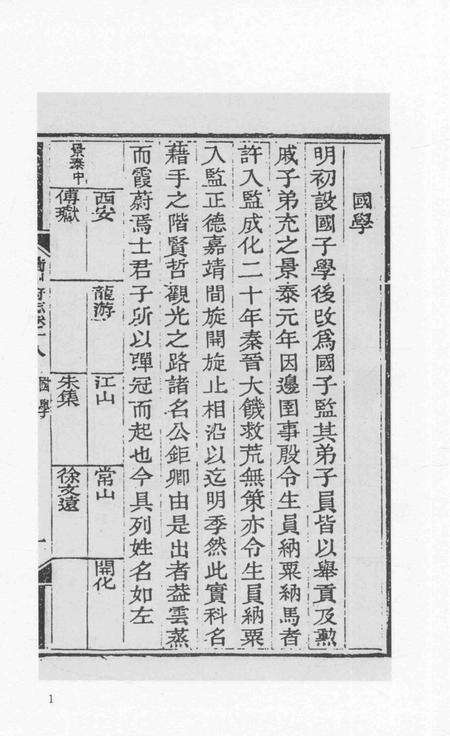 國學
明初設國子學後改爲國子監其弟子員皆以舉貢及勲
戚子弟充之景泰元年因邊圉事殷令生員納粟納馬者
許入監成化二十年秦晉大饑救荒無策亦令生員納粟
入監正德嘉靖間旋開旋止相沿以迄明季然此實科名
藉手之階賢哲觀光之路諸名公鉅卿由是出者葢雲蒸
而霞蔚焉士君子所以彈冠而起也今具列姓名如左
西安 龍游 江山 常山 開化
景泰中 傅嶽 朱集 徐文遠
國學 一
1